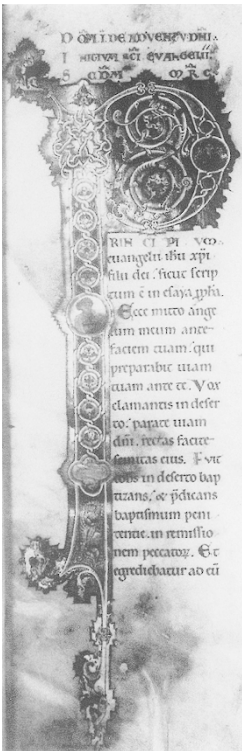 INITIVM SCI EVANGELII.
RIN CI PI VM
euangelii ihu xpi
filii dei. sicut scrip
tum ē in esaya ppha.
Ecce mitto ange
lum meum ante
faciem tuam. qui
preparabit uiam
tuam ante te. Vox
clamantis in deser
to. parate uiam
dm̄i. rectas facite
semitas eius. Fuit
iohs in deserto bap
tizans. & p̄dicans
baptismum peni
tentie. in remissio
nem peccatoꝝ. Et
egrediebatur ad eū